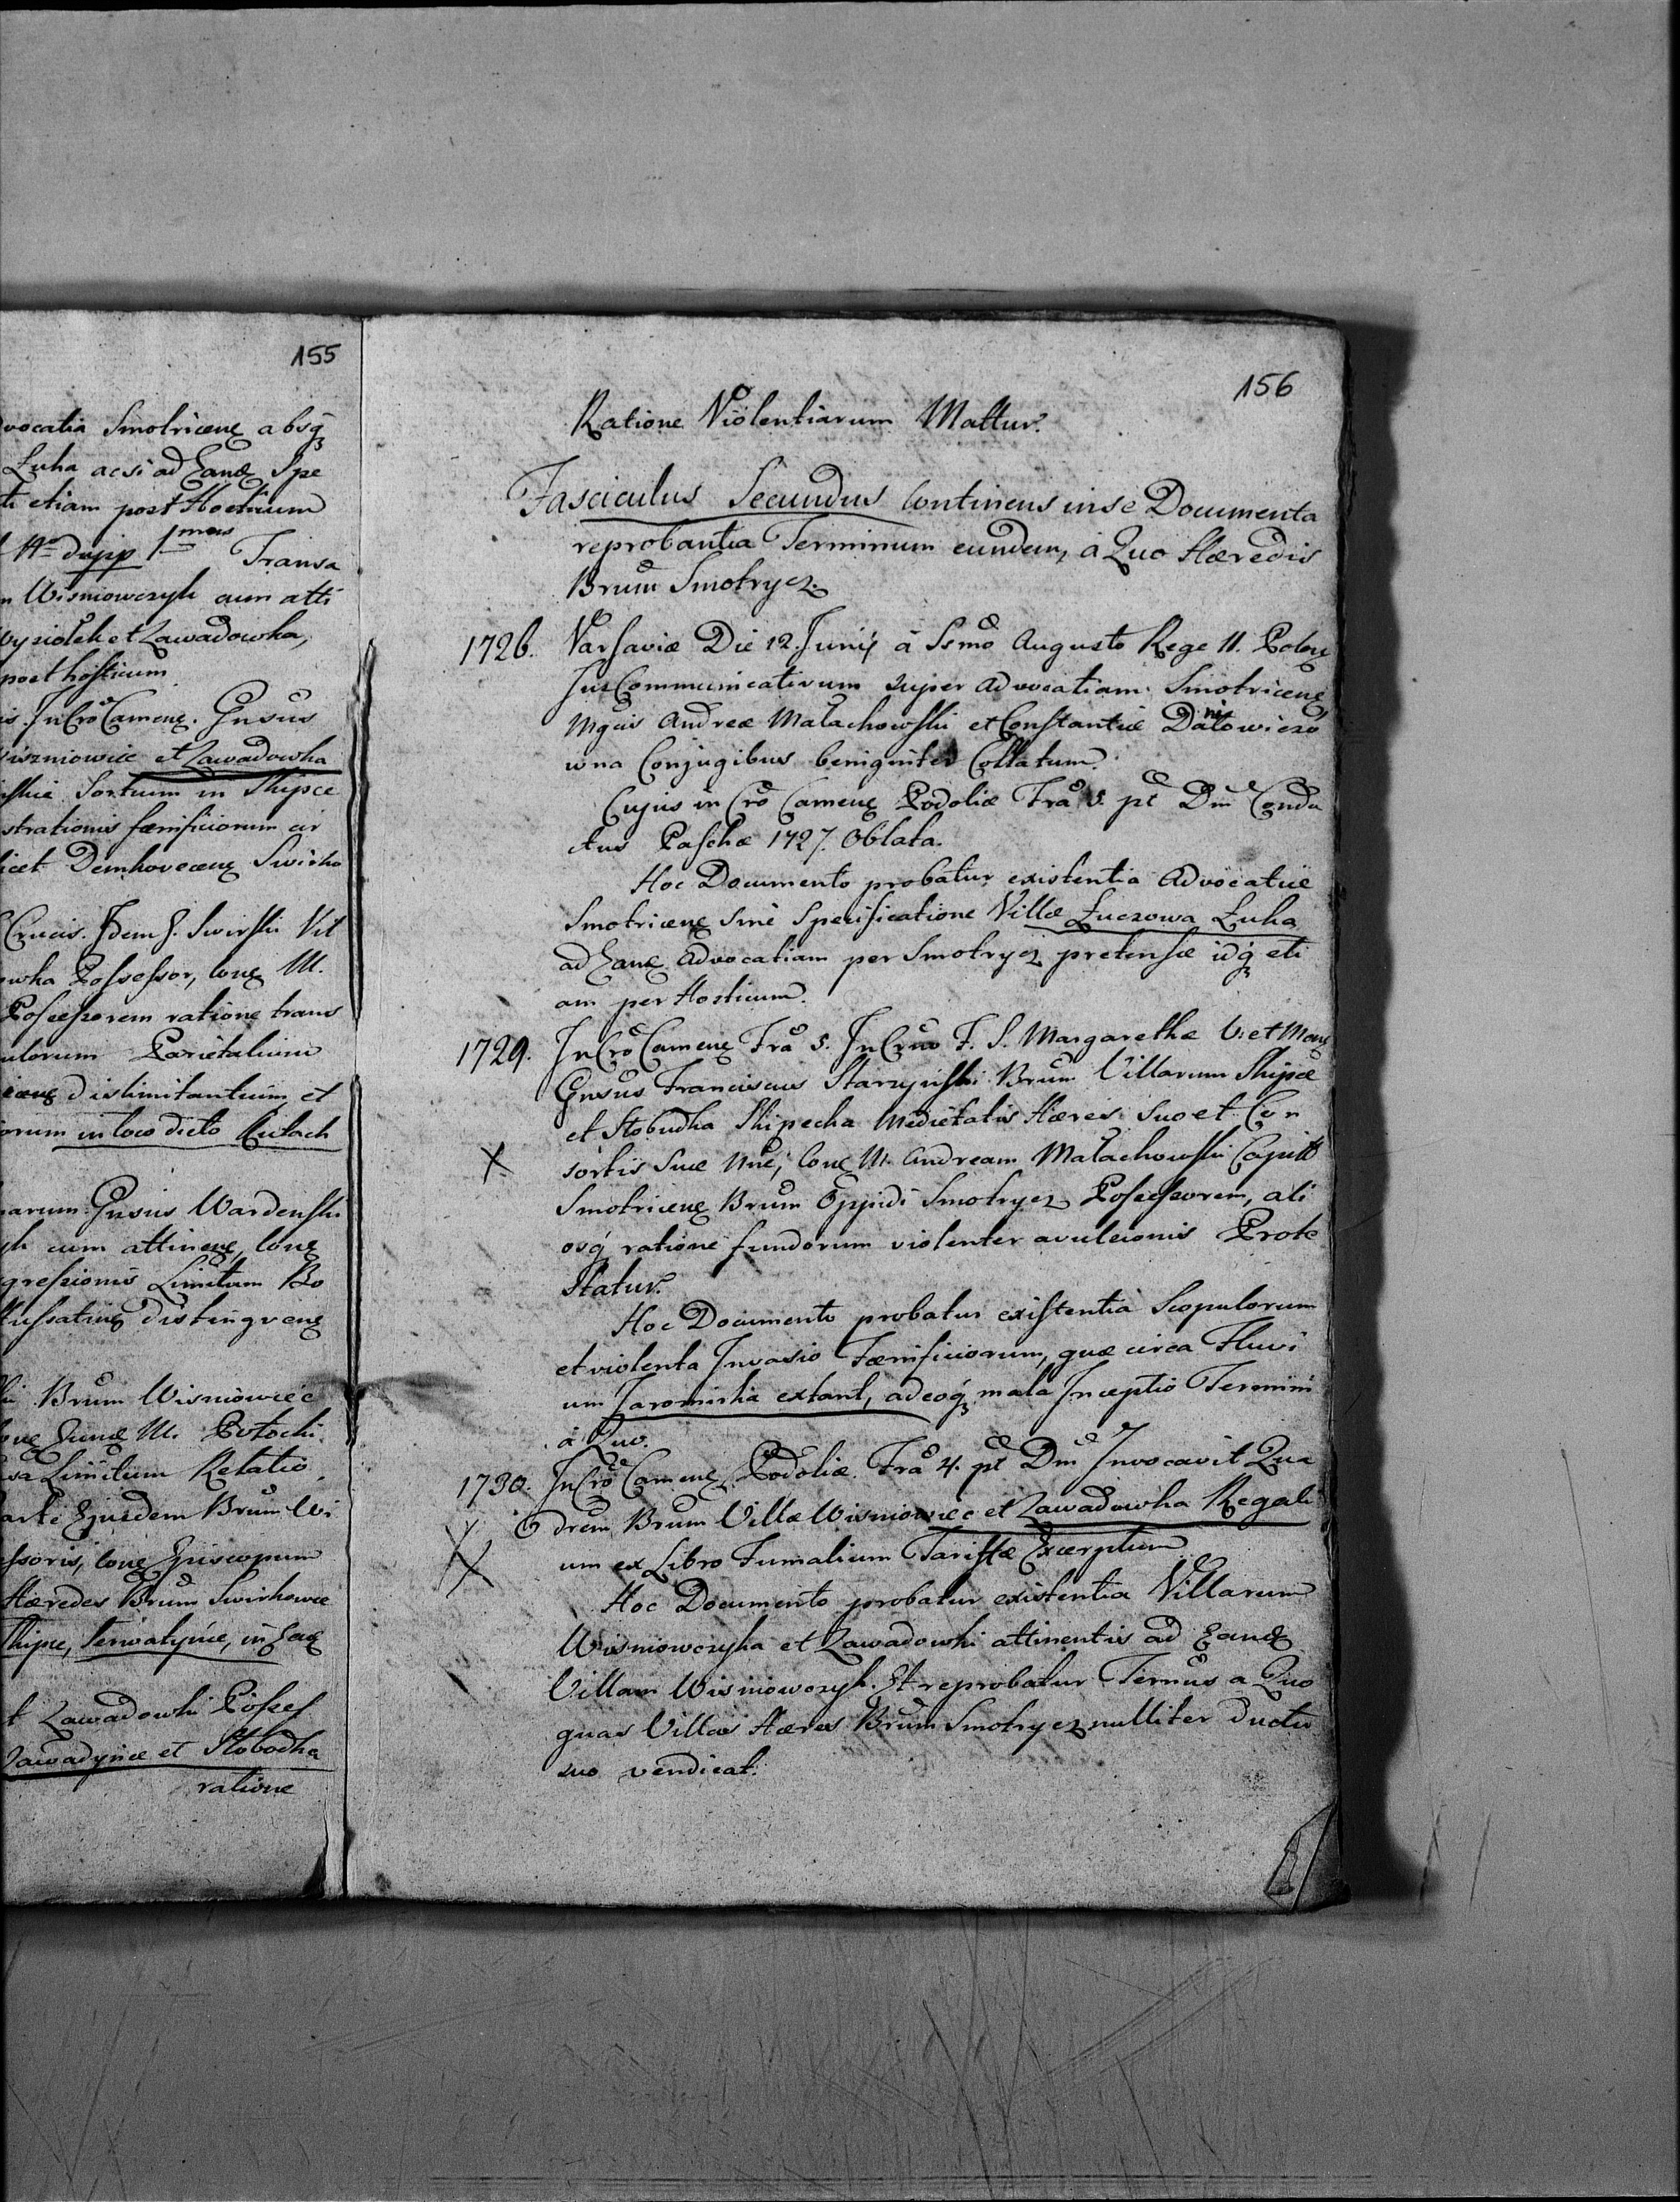 155
vocatia Smotricens absq
Łuka acsi ad Eand Spe
ti etiam post Hosticum
1mus Transa
Wisniowczyk cum atti
Wysiołek et Zawadowka,
post hosticum
is. In Cro Camens. Gnsus
Wiszniowiec et Zawadowka
Sortium in Skipce
strationis faenificiorum cir
licet Demkovecens Swirko
Crucis. Idem G. Swirski Vil
owka Possessor, cons M.
Possessorem ratione trans
ulorum Parietalium
icens dislimitantium et
orum in loco dicto Rutach
arum Gnsus Wardenski
yk cum attinens, cons
gressionis Limitum Bo
distingvens
Brum Wisniowiec
ons Eund M. Potocki
Limitum Relatio
arte Ejusdem Brum Wi
ssoris, cons Episcopum
Hæredes Brum Swirkowce
Skipce, Serwatynie, in Eas
t Zawadowki Posses
Zawadynce et Słobodka
ratione
156
Ratione Violentiarum Mattur.
Fasciculus Secundus Continens in se Documenta
reprobantia Terminum eundem, à Quo Hæredis
Brum Smotrycz.
1726. Varsaviæ Die 12. Junij à Ssmo Augusto Rege II. Polons
Jus Communicativum super Advocatiam Smotricens
Mgcis Andreæ Małachowski et Constantiæ Daniłowiczo
wna Conjugibus benigniter Collatum.
Cujus in Cro Camens Podoliæ Fra 5. pt Dm Condu
ctus Paschæ 1727. Oblata.
Hoc Documento probatur existentia Advocatiæ
Smotricens sine Specificatione Villæ Łuczowa Łuka
ad Eand Advocatiam per Smotrycz pretensæ idq eti
am per Hosticum.
1729. In Cro Camens Fra 5. In Crno F. S. Margarethæ V. et Mars
Gnsus Franciscus Starzynski Brum Villarum Skipce
et Słobudka Skipecka Medietatis Hæres Suo et Con
X sortis Suæ Nne, cons M. Andream Małachowski Capitt
Smotricens Brum Oppidi Smotrycz Possessorem, ali
osq ratione fundorum violenter avulsionis Prote
statur.
Hoc Documento probatur existentia Scopulorum
et violenta Invasio Fænificiorum, quæ circa Fluvi
um Jaromirka extant, adeoq mala Inceptio Termini
à Quo.
1730. In Cro Camens Podoliæ Fra 4. pt Dm Invocavit Qua
drem Brum Villæ Wisniowiec et Zawadowka Regali
X um ex Libro Fumalium Tariffæ Excerptum
Hoc Documento probatur existentia Villarum
Wisniowczyka et Zawadowki attinentis ad Eand
Villam Wisniowczyk. Et reprobatur Termus a Quo
quas Villas Hæres Brum Smotrycz nulliter ductu
suo vendicat.